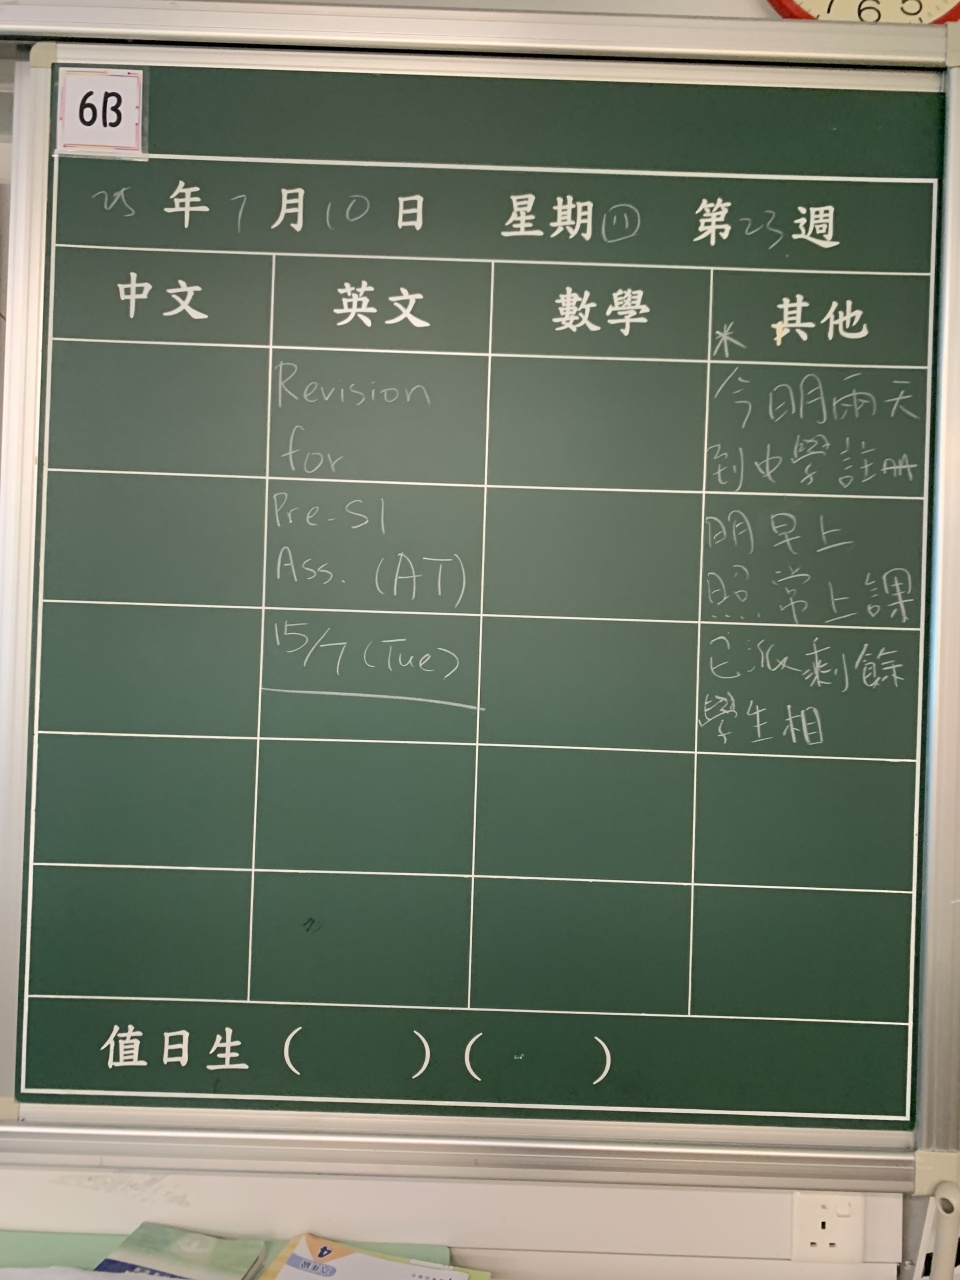 7 6 5
6B
25 年 7 月 10 日 星期四 第 23 週
中文 英文 數學 其他
Revision
for
Pre-S1
Ass. (AT)
15/7 (Tue)
* 今日明兩天
到中學註冊
明早上
照常上課
已派剩餘
學生相
值日生 ( ) ( )
4